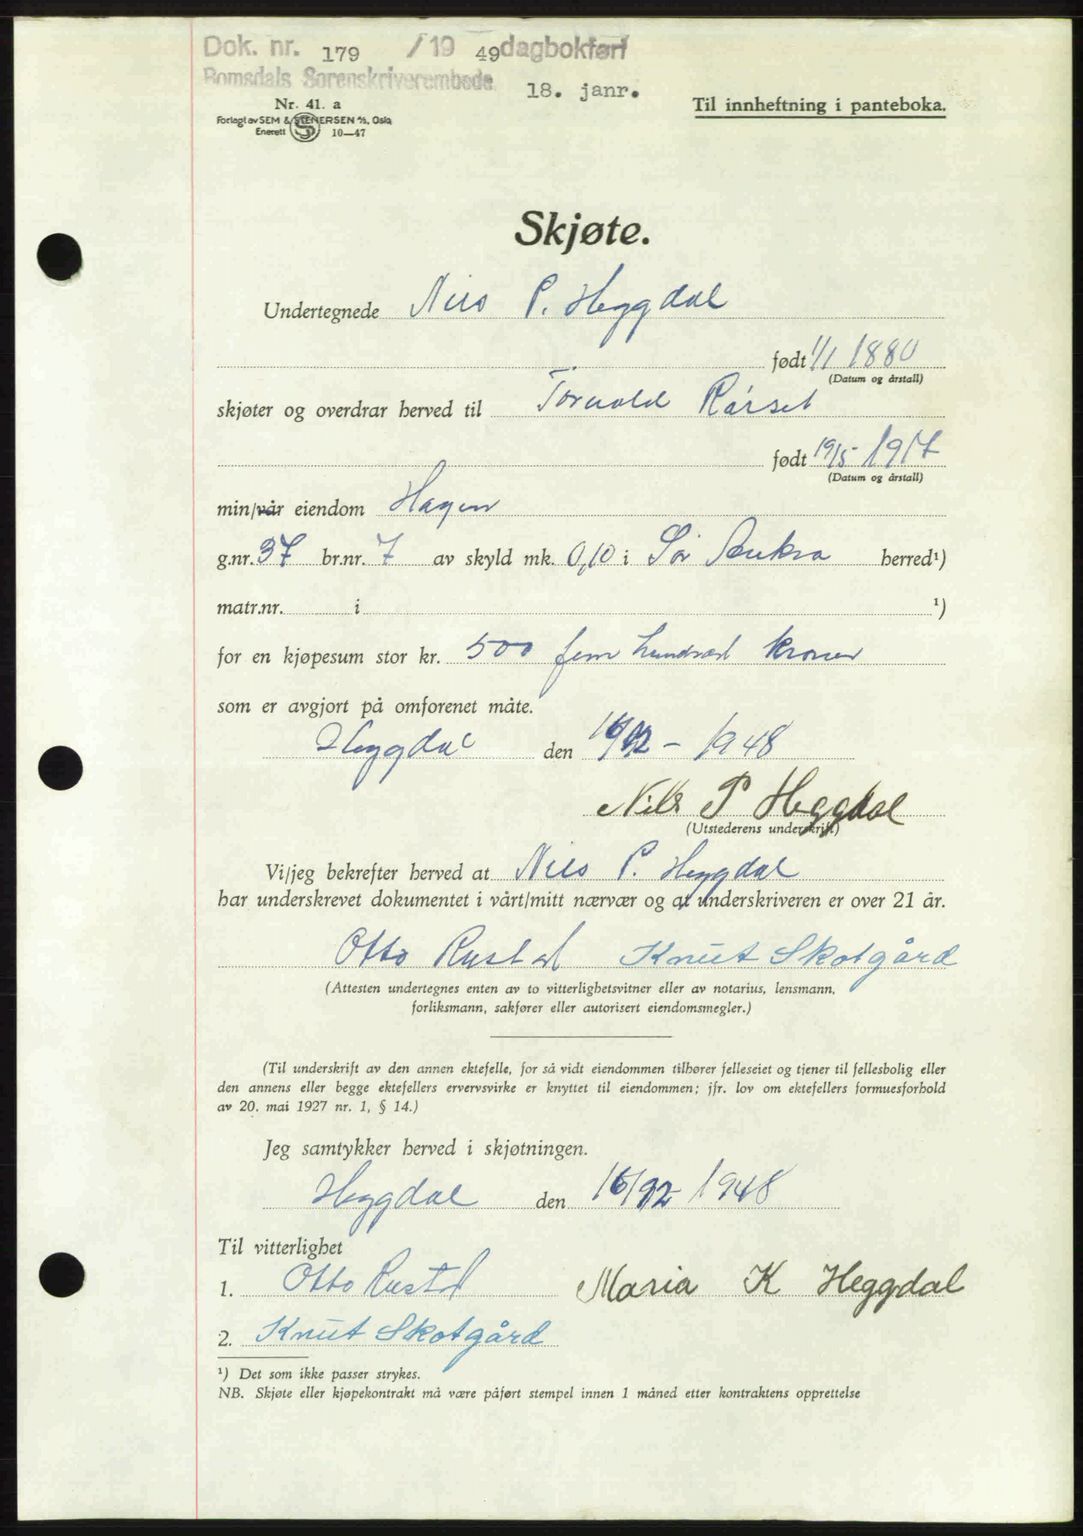 Dok. nr. 179 /19 49 dagbokført
Romsdals Sorenskriverembede 18. janr.
Nr. 41. a
Forlagt av SEM & STENERSEN A/S, Oslo
Enerett 10—47
Til innheftning i panteboka.
Skjøte.
Undertegnede Nils P. Heggdal
født 1/1 1880
(Datum og årstall)
skjøter og overdrar herved til Torvald Rørset
født 19/5 1917
(Datum og årstall)
min/vår eiendom Hagen
g.nr. 37 br.nr. 7 av skyld mk. 0,10 i Sør Aukra herred¹)
matr.nr. i ¹)
for en kjøpesum stor kr. 500 fem hundred kroner
som er avgjort på omforenet måte.
Heggdal den 16/12 - 1948
Nils P Heggdal
(Utstederens underskrift)
Vi/jeg bekrefter herved at Nils P. Heggdal
har underskrevet dokumentet i vårt/mitt nærvær og at underskriveren er over 21 år.
Otto Rustad Knut Skotgård
(Attesten undertegnes enten av to vitterlighetsvitner eller av notarius, lensmann,
forliksmann, sakfører eller autorisert eiendomsmegler.)
(Til underskrift av den annen ektefelle, for så vidt eiendommen tilhører felleseiet og tjener til fellesbolig eller
den annens eller begge ektefellers ervervsvirke er knyttet til eiendommen; jfr. lov om ektefellers formuesforhold
av 20. mai 1927 nr. 1, § 14.)
Jeg samtykker herved i skjøtningen.
Heggdal den 16/12 1948
Til vitterlighet
1. Otto Rustad Maria K Heggdal
2. Knut Skotgård
¹) Det som ikke passer strykes.
NB. Skjøte eller kjøpekontrakt må være påført stempel innen 1 måned etter kontraktens opprettelse